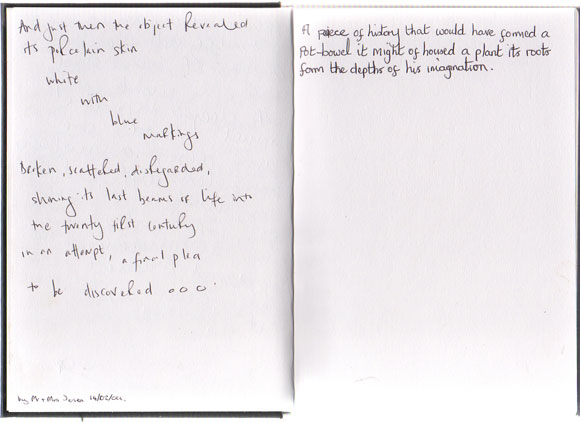 And just then the object revealed
its porcelain skin
white
with
blue
markings
Broken, scattered, disregarded,
shining its last beams of life into
the twenty first century
in an attempt, a final plea
to be discovered ooo
by Mr + Mrs Jones
A peiece of history that would have formed a
Pot-bowel it might of housed a plant its roots
form the depths of his imagination.